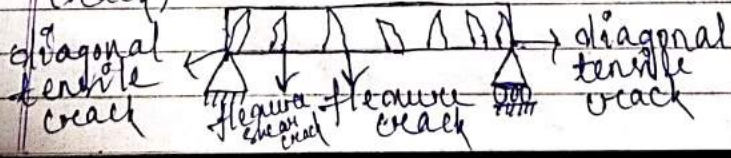 diagonal
tensile
crack
flexure
shear
crack
flexure
crack
diagonal
tensile
crack